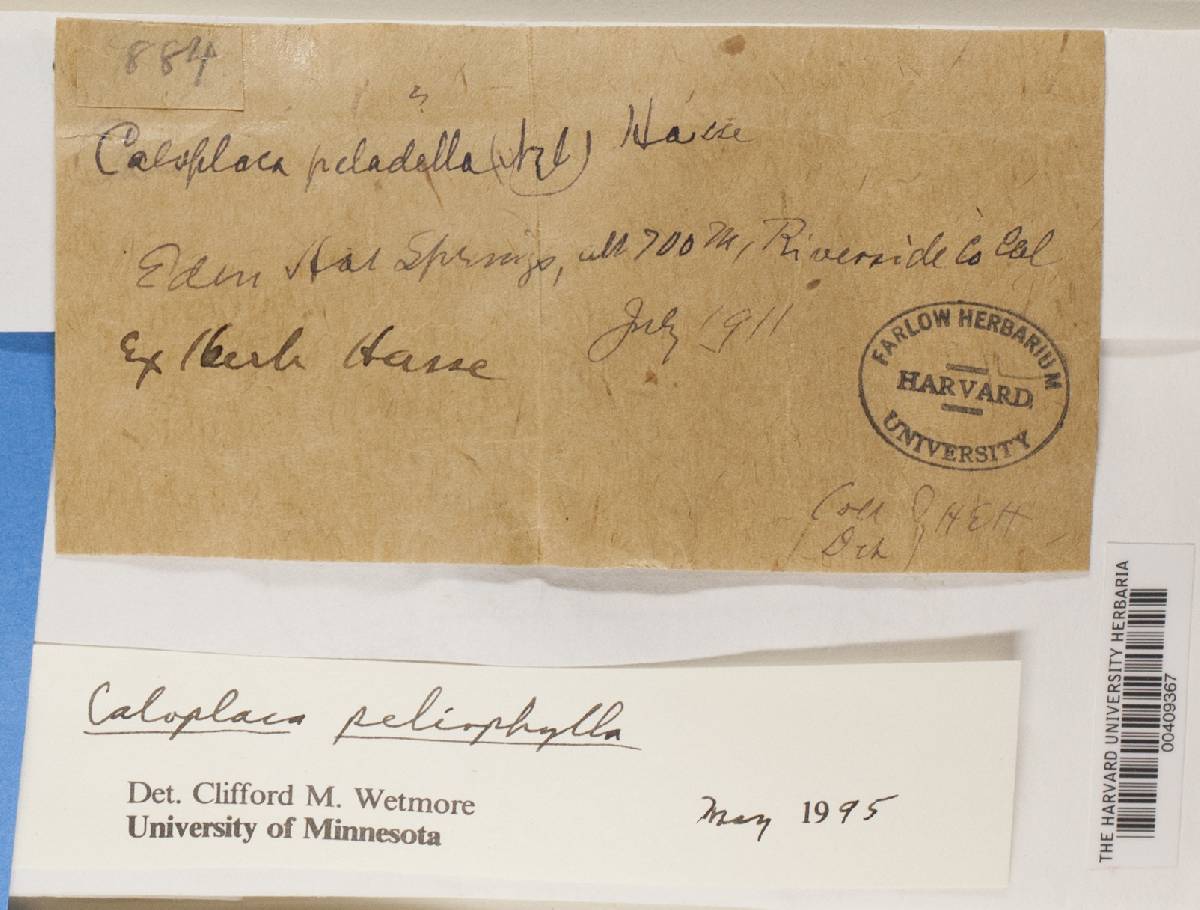 884
?
Caloplaca peladella (Nyl) Hasse
Eden Hot Springs, alt 700 M, Riverside Co Cal
July 1911
Ex Herb Hasse
FARLOW HERBARIUM
HARVARD
UNIVERSITY
Coll
Det } HEH
Caloplaca peliophylla
Det. Clifford M. Wetmore
University of Minnesota
May 1995
THE HARVARD UNIVERSITY HERBARIA
00409367